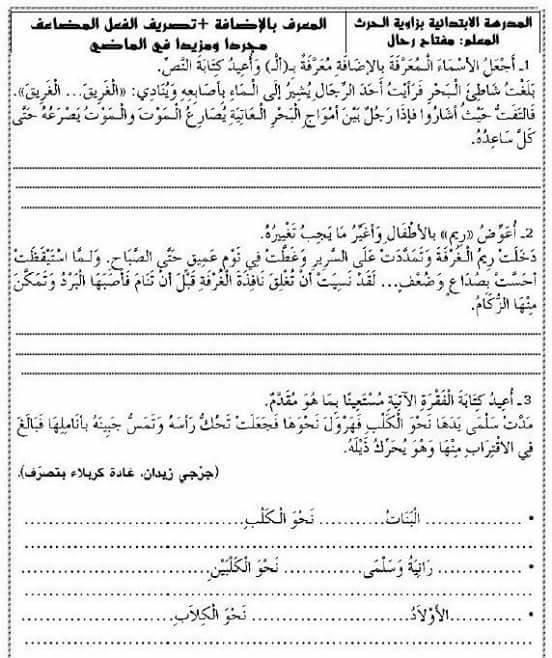 المدرسة الابتدائية بزاوية الحرث
المعلم: مفتاح رحال
المعرف بالإضافة +تصريف الفعل المضاعف
مجردا ومزيدا في الماضي
1ـ أَجْعَلُ الأَسْمَاءَ الْـمُعَرَّفَةَ بالإضَافَةِ مُعَرَّفَةً بـ(الْـ) وَأُعِيدُ كِتَابَةَ النَّصِّ.
بَلَغْتُ شَاطِئَ الْبَحْرِ فَرَأَيْتُ أَحَدَ الرِّجَالِ يُشِيرُ إلَى الْـمَاءِ بأَصَابعِهِ وَيُنَادِي: «الْغَرِيقَ... الْغَرِيقَ».
فَالتَفَتُّ حَيْثُ أَشَارُوا فَإذَا رَجُلٌ بَيْنَ أَمْوَاجِ الْبَحْرِ الْعَاتِيَةِ يُصَارِعُ الْـمَوْتَ وَالْـمَوْتُ يَصْرَعُهُ حَتَّى
كَلَّ سَاعِدُهُ.
2ـ أُعَوِّضُ «رِيم» بالأَطْفَالِ وَأُغَيِّرُ مَا يَجِبُ تَغْيِيرُهُ.
دَخَلَتْ رِيمُ الْـغُرْفَةَ وَتَمَدَّدَتْ عَلَى السَّرِيرِ وَغَطَّتْ فِي نَوْمٍ عَمِيقٍ حَتَّى الصَّبَاحِ. وَلَـمَّا اسْتَيْقَظَتْ
أَحَسَّتْ بِصُدَاعٍ وَضُعْفٍ... لَقَدْ نَسِيَتْ أَنْ تُغْلِقَ نَافِذَةَ الْغُرْفَةِ قَبْلَ أَنْ تَنَامَ فَأَصَابَهَا الْبَرْدُ وَتَمَكَّنَ
مِنْهَا الزُّكَامُ.
3ـ أُعِيدُ كِتَابَةَ الْفَقْرَةِ الآتِيَةِ مُسْتَعِينًا بِمَا هُوَ مُقَدَّمٌ.
مَدَّتْ سَلْمَى يَدَهَا نَحْوَ الْكَلْبِ فَهَرْوَلَ نَحْوَهَا فَجَعَلَتْ تَحُكُّ رَأْسَهُ وَتَمَسُّ جَبِينَهُ بأَنَامِلِهَا فَبَالَغَ
فِي الاقْتِرَابِ مِنْهَا وَهُوَ يُحَرِّكُ ذَيْلَهُ.
(جرجي زيدان، غادة كربلاء بتصرف).
• ............... الْبَنَاتُ........... نَحْوَ الْـكَلْبِ...............................
• ............... رَانِيَةُ وَسَلْمَى............. نَحْوَ الْكَلْبَيْنِ...............................
• ............الأَوْلَادُ............... نَحْوَ الْـكِلَابِ...............................